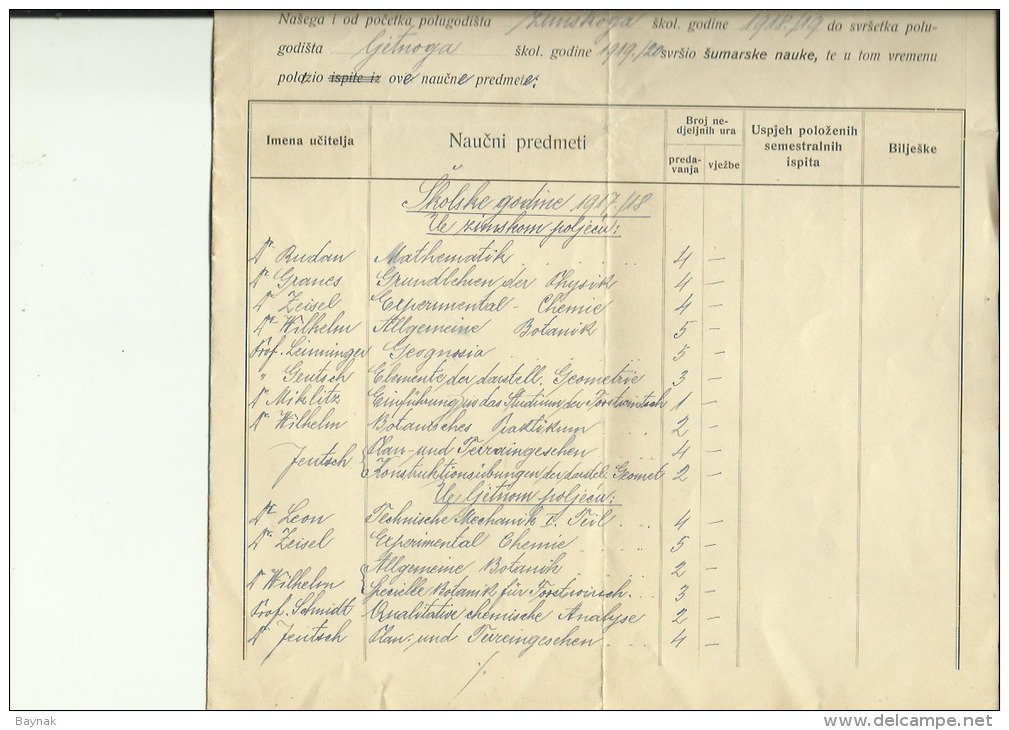 Našega i od početka polugodišta zimskoga škol. godine 1918./19 do svršetka polu-
godišta ljetnoga škol. godine 1919./20 svršio šumarske nauke, te u tom vremenu
polazio ispite iz ove naučne predmete:
Imena učitelja Naučni predmeti Broj ne-djeljnih ura preda-vanja vježbe Uspjeh položenih semestralnih ispita Bilješke
Školske godine 1917/18
U zimskom poljeću:
Dr Rudan Mathematik 4 –
Dr Granes Grundlehren der Physik 4 –
Dr Zeisel Experimental - Chemie 4 –
Dr Wilhelm Allgemeine Botanik 5 –
Prof. Leinninger Geognosia 5 –
" Gentsch Elemente der darstell. Geometrie 3 –
Dr Miklitz Einführung in das Studium der Forstwirtsch 1 –
Dr Wilhelm Botanisches Praktikum 2 –
Jentsch Plan- und Terraingeschen 4 –
Konstruktionsübungen der darstel. Geometr 2 –
U ljetnom poljeću:
Dr Leon Technische Mechanik I. Teil 4 –
Dr Zeisel Experimental Chemie 5 –
Allgemeine Botanik 2 –
Dr Wilhelm Spezielle Botanik für Forstwirsch. 3 –
Prof. Schmidt Qualitative chemische Analyse 2 –
Dr Jentsch Plan- und Terreingeschen 4 –
./.
Baynak
delcampe.net